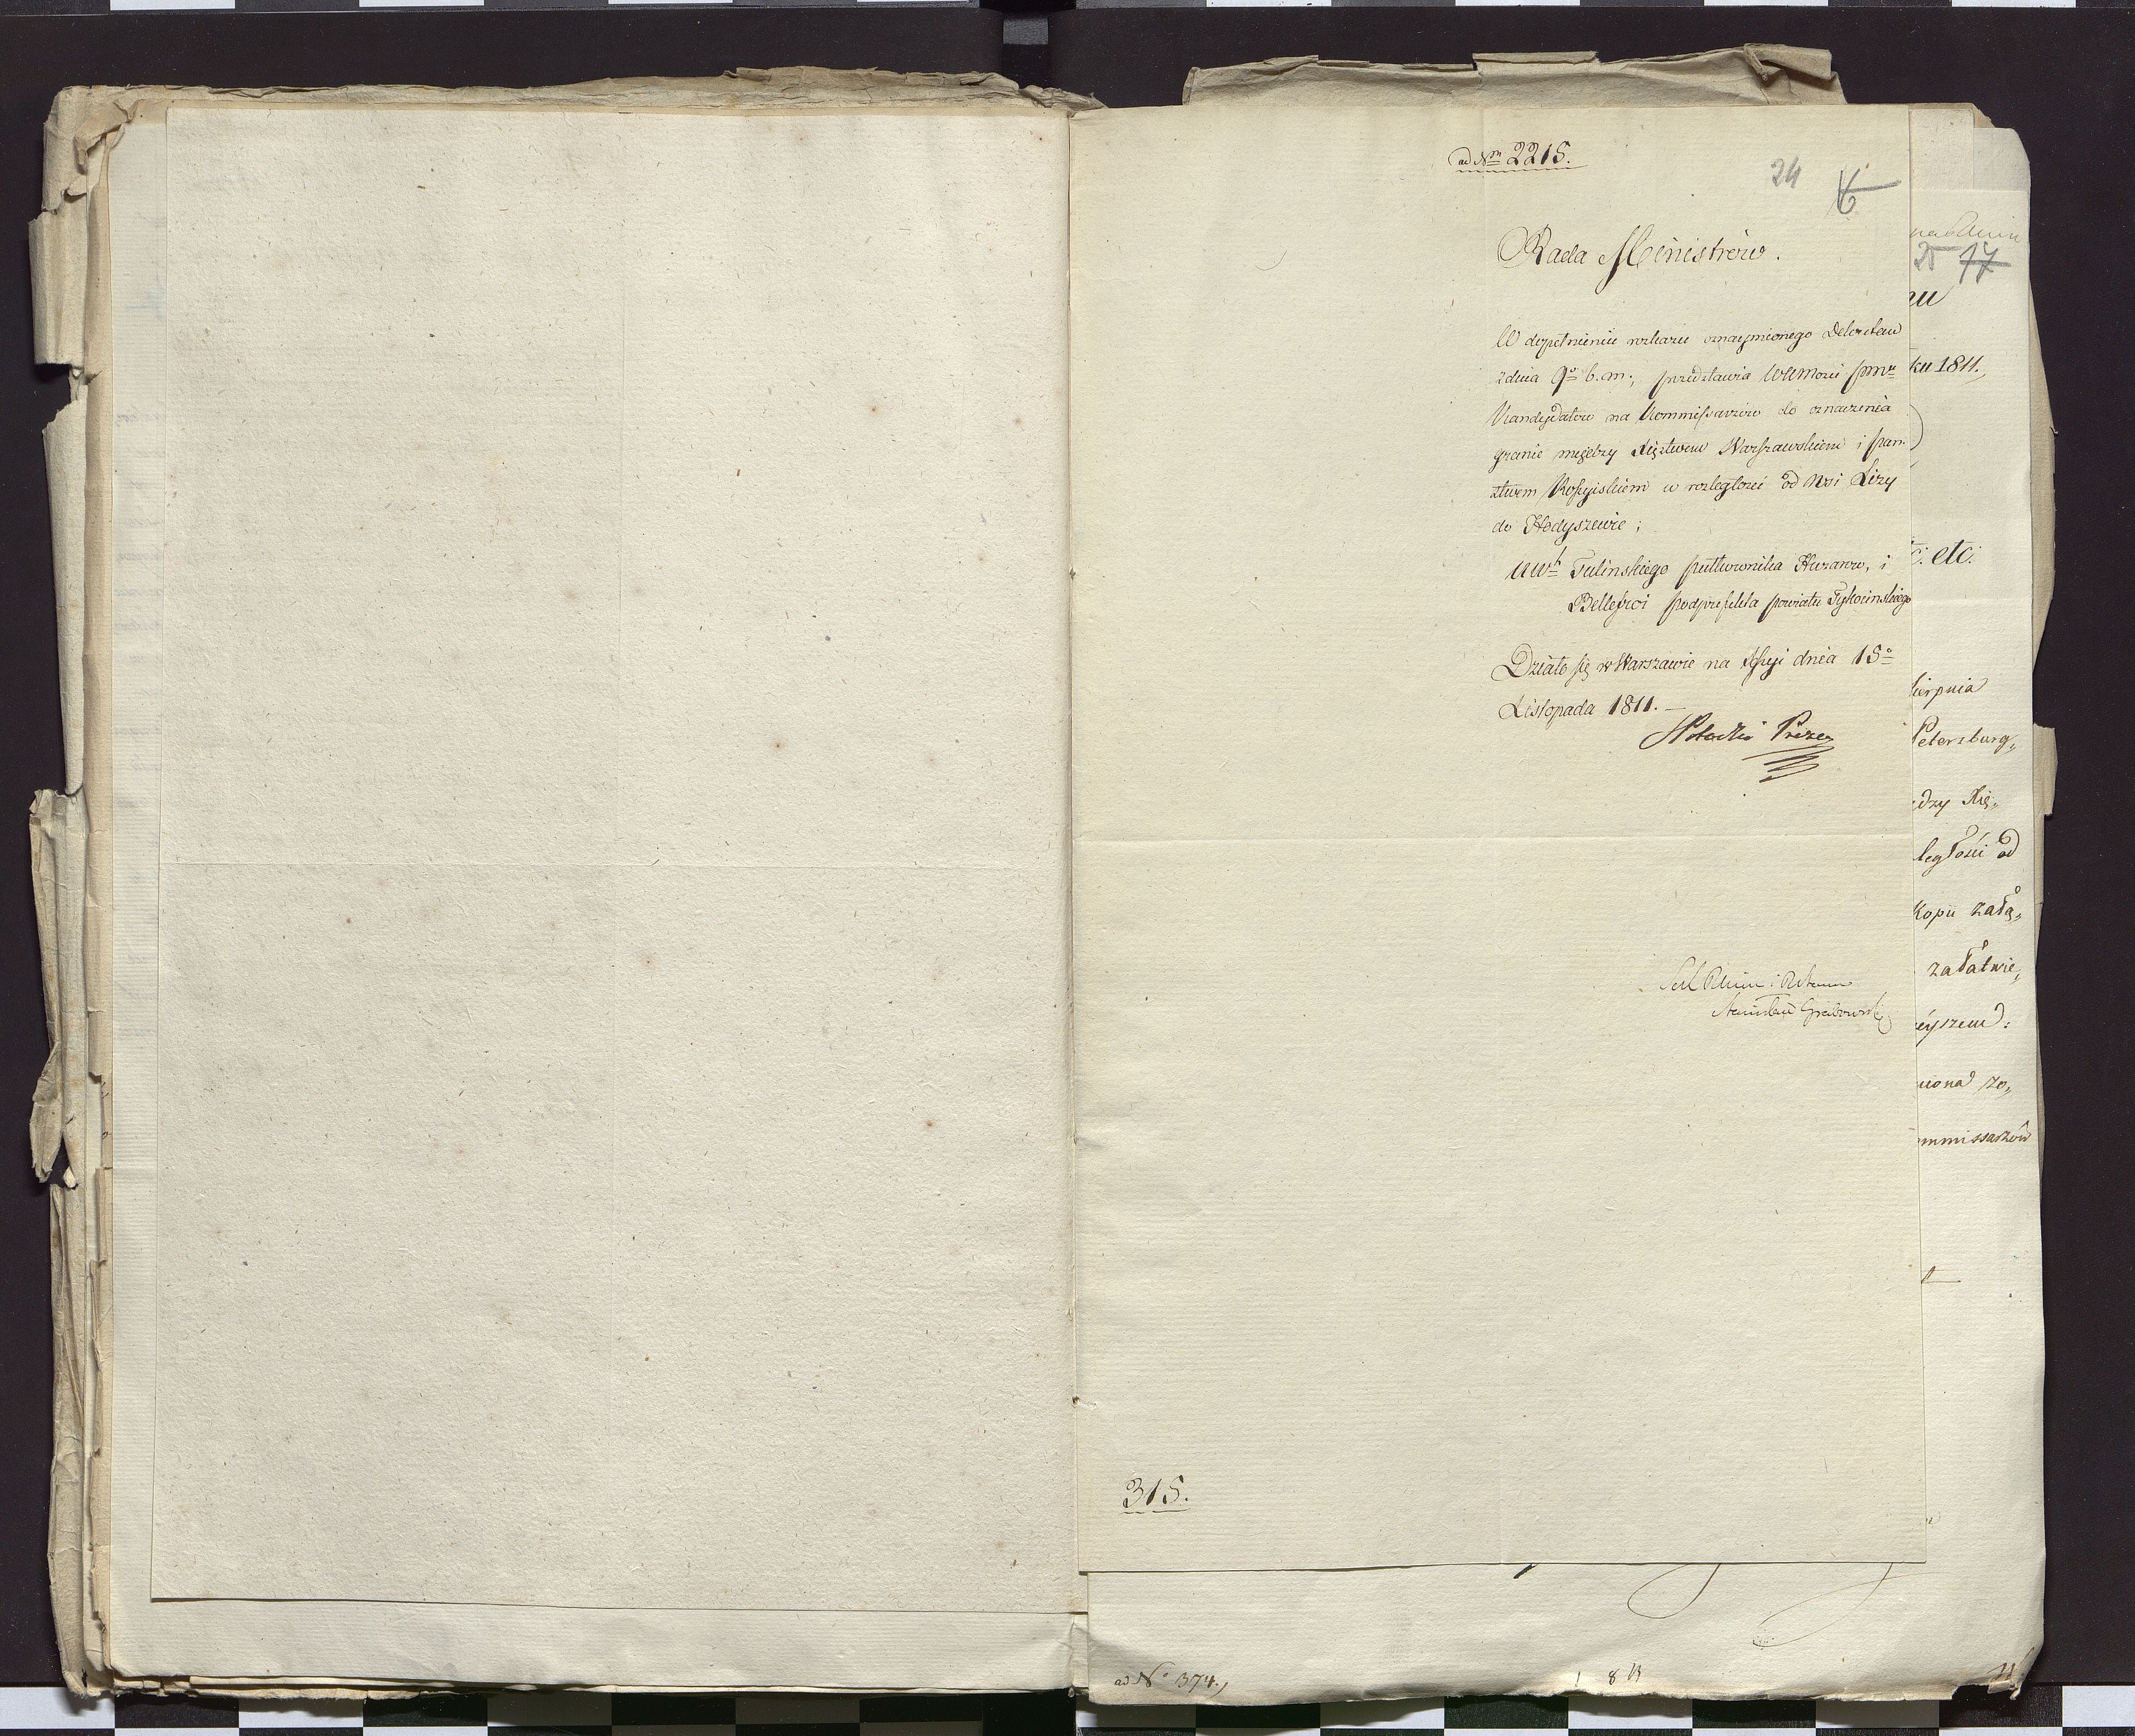 ad Nm 2215.
24 16
Rada Ministrów.
W dopełnieniu rozkazu oznaymionego Dekretem
z dnia 9o b. m., przedstawia WKMości
Kandydatow na Kommissarzów do oznaczenia
granic między Xięstwem Warszawskiem i pań-
stwem Rossyiskiem w rozległości od Wsi Lizy
do Hodyszewa;
Tulinskiego pułkownika Huzarów, i
podprefekta powiatu Tykocinskiego
Działo się w Warszawie na Sessyi dnia 15o
Listopada 1811. —
Potocki Prezes
Stanisław Grabowski
315.
25 17
ku 1811.
etc.
Sierpnia
Petersburg„
dzy Xię„
ległości od
Kopii załą„
załatwie„
ommissarzów
ad No 374.